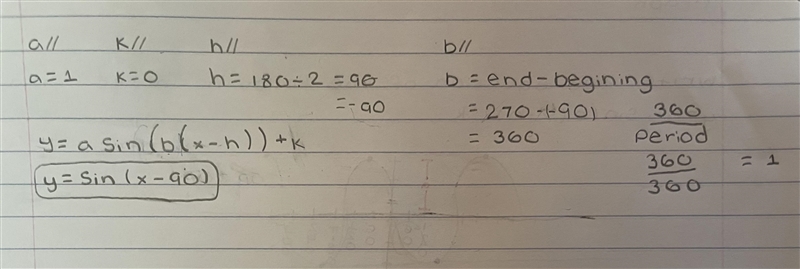 a// k// h// b//
a=1 k=0 h= 180÷2 = 90 b = end-begining
= -90 = 270-(-90) 360
y= a sin(b(x-h))+k = 360 period
y= sin (x-90) 360 = 1
360